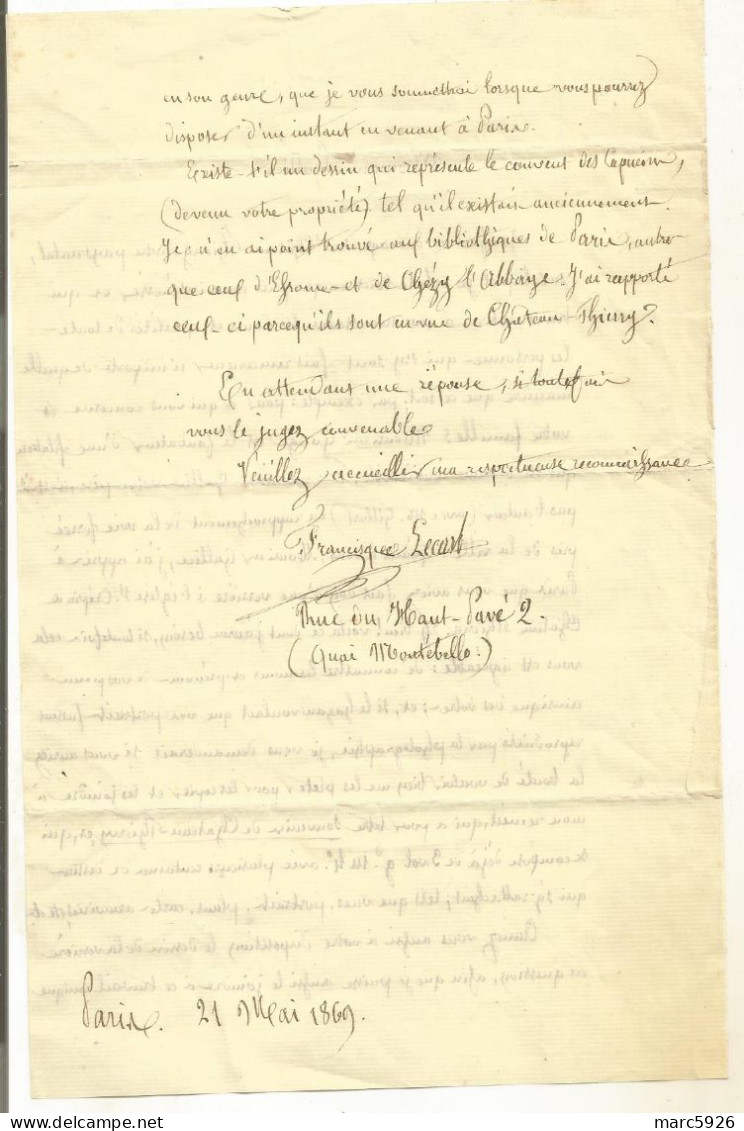 en son genre, que je vous soumettrai lorsque vous pourrez
disposer d'un instant en venant à Paris.
Existe-t'il un dessin qui représente le couvent des Capucins,
(devenu votre propriété) tel qu'il existait anciennement.
Je n'en ai point trouvé aux bibliothèques de Paris, autre
que ceux d'Essome et de Chézy l'Abbaye. J'ai rapporté
ceux-ci parcequ'ils sont en vue de Château-Thierry.
En attendant une réponse, si toutefois
vous le jugez convenable
Veuillez accueillir ma respectueuse reconnaissance
Francisque Lecart
Rue du Haut-Pavé 2.
(Quai Montébello.)
Paris. 21 Mai 1869.
marc5926